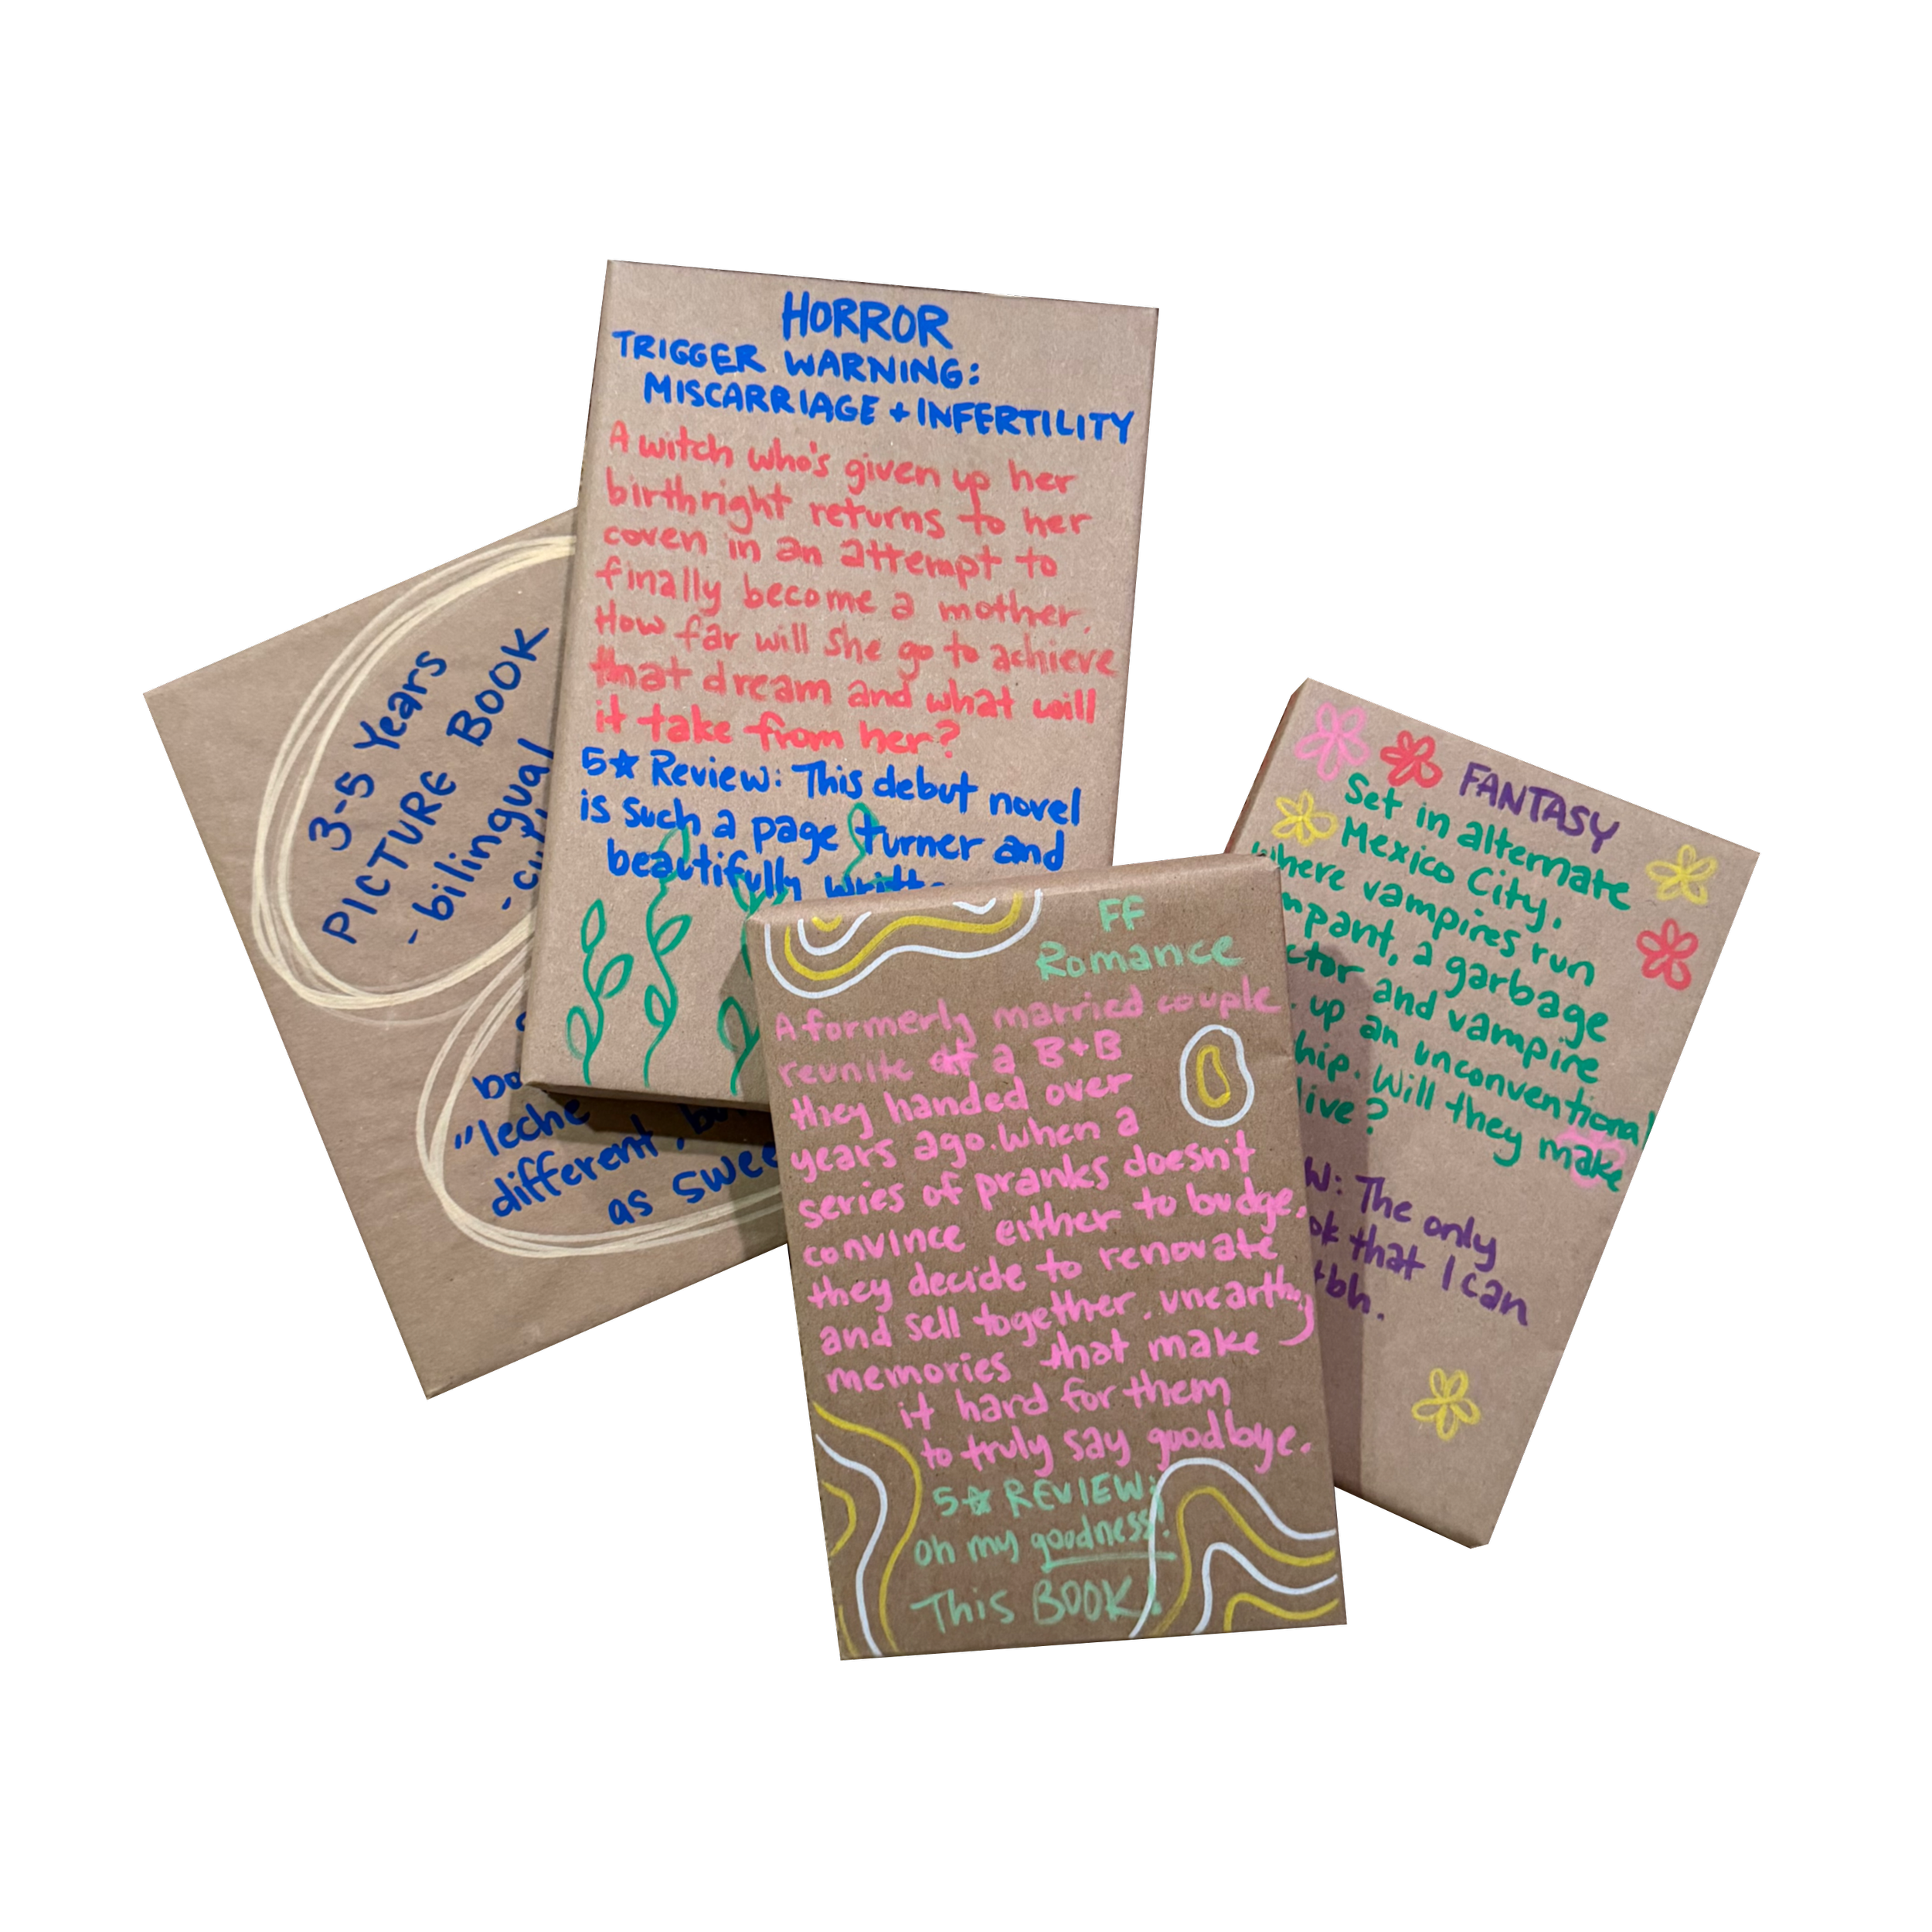 HORROR
TRIGGER WARNING:
MISCARRIAGE + INFERTILITY
A witch who's given up her
birthright returns to her
coven in an attempt to
finally become a mother.
How far will she go to achieve
that dream and what will
it take from her?
5☆ Review: This debut novel
is such a page turner and
beautifully
3-5 Years
PICTURE BOOK
- bilingual
"leche
different,
as
FF
Romance
A formerly married couple
reunite at a B+B
they handed over
years ago. When a
series of pranks doesn't
convince either to budge,
they decide to renovate
and sell together, unearthing
memories that make
it hard for them
to truly say goodbye.
5☆ REVIEW:
oh my goodness!
This BOOK!
FANTASY
Set in alternate
Mexico City,
where vampires run
a garbage
and vampire
up an unconventional
Will they make
The only
that I can
tbh.